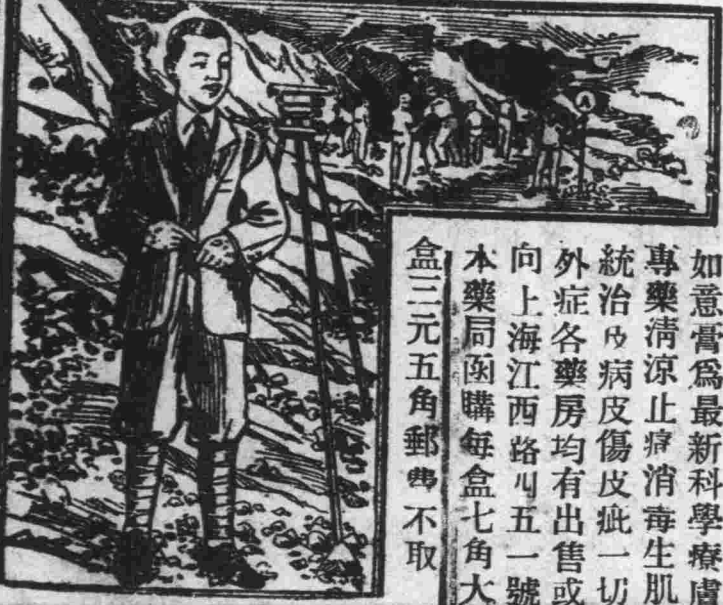 如意膏爲最新科學療膚
專藥淸涼止消毒生肌
統治皮病皮傷皮疵一切
外症各藥房均有出售或
向上海江西路四五一號
本藥局函購每盒七角大
盒三元五角郵費不取
A